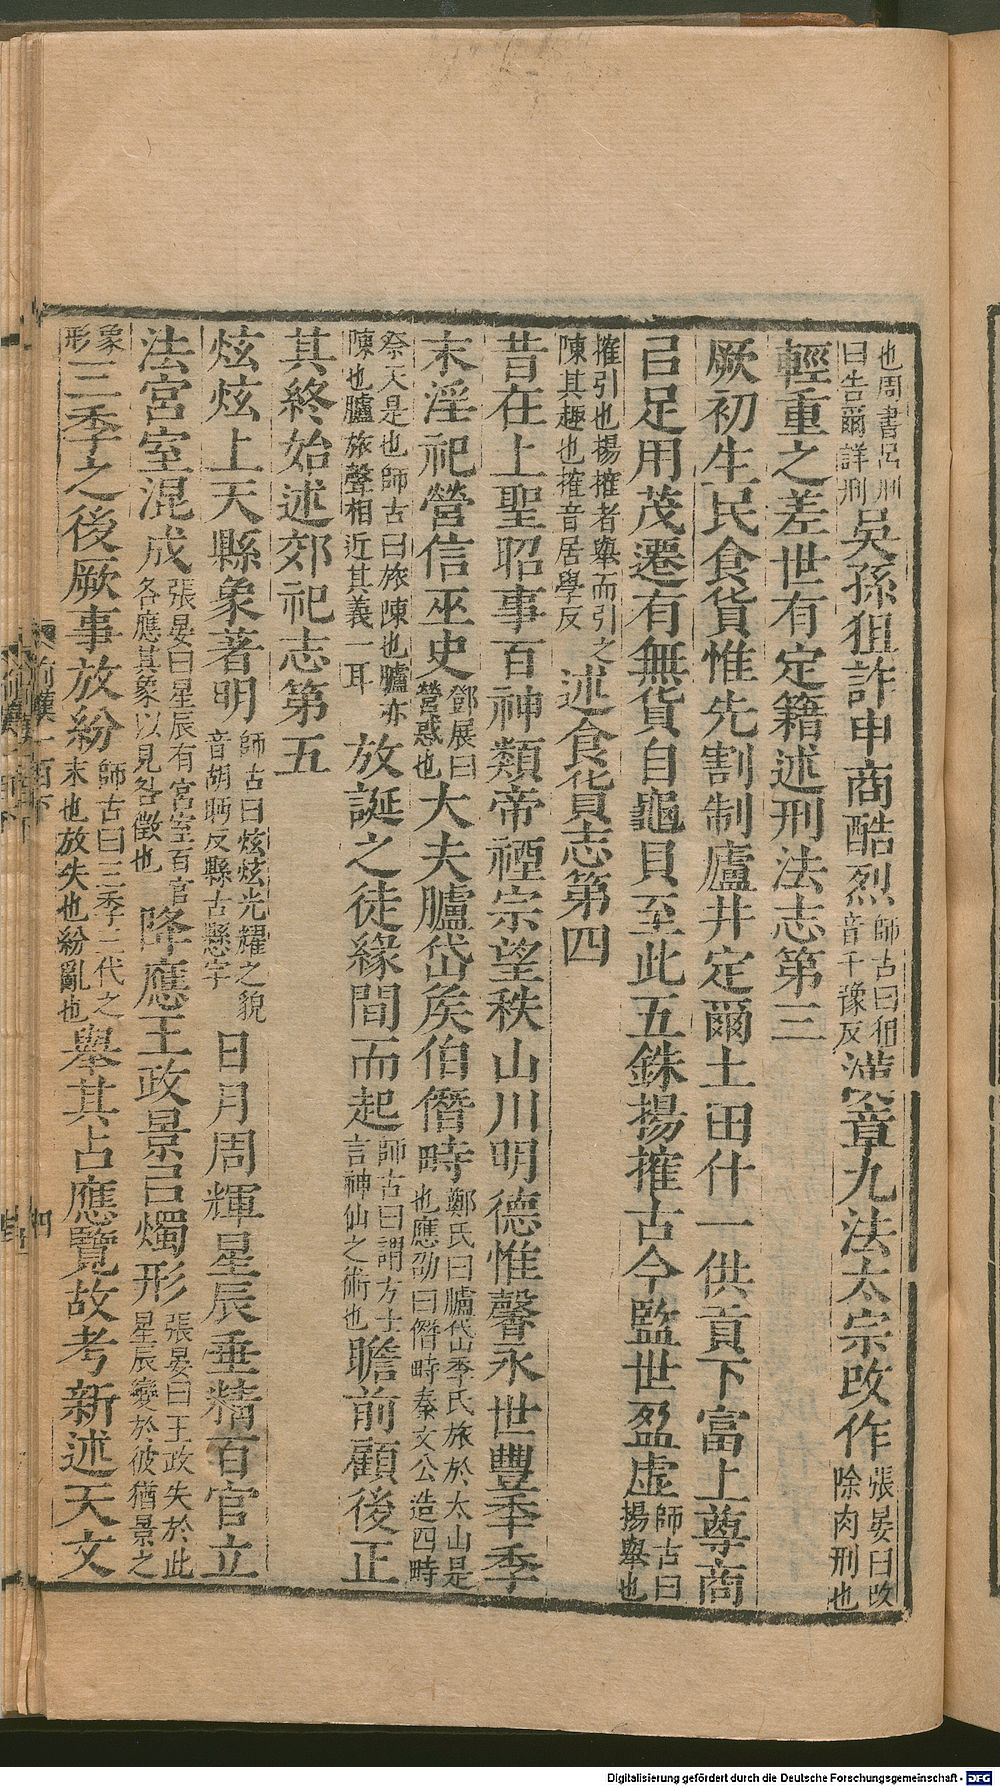 也周書呂刑曰告爾詳刑吳孫狙詐申商酷烈師古曰狙音千豫反漢章九法太宗改作張晏曰改除肉刑也
輕重之差世有定籍述刑法志第三
厥初生民食貨惟先割制廬井定爾土田什一供貢下富上尊商
㠯足用茂遷有無貨自龜貝至此五銖揚搉古今監世盈虛師古曰揚舉也
搉引也揚搉者舉而引之陳其趣也搉音居學反述食貨志第四
昔在上聖昭事百神類帝禋宗望秩山川明德惟馨永世豐年季
末淫祀營信巫史鄧展曰營惑也大夫臚岱矦伯僭畤鄭氏曰臚岱季氏旅於太山是也應劭曰僭畤秦文公造四畤
祭天是也師古曰旅陳也臚亦陳也臚旅聲相近其義一耳放誕之徒緣間而起師古曰謂方士言神仙之術也瞻前顧後正
其終始述郊祀志第五
炫炫上天縣象著明師古曰炫炫光耀之貌音胡眄反縣古懸字日月周輝星辰垂精百官立
法宮室混成張晏曰星辰有宮室百官各應其象以見咎徵也降應王政景㠯燭形張晏曰王政失於此星辰變於彼猶景之
象形三季之後厥事放紛師古曰三季三代之末也放失也紛亂也舉其占應覽故考新述天文
前漢一百下
四
Digitalisierung gefördert durch die Deutsche Forschungsgemeinschaft - DFG